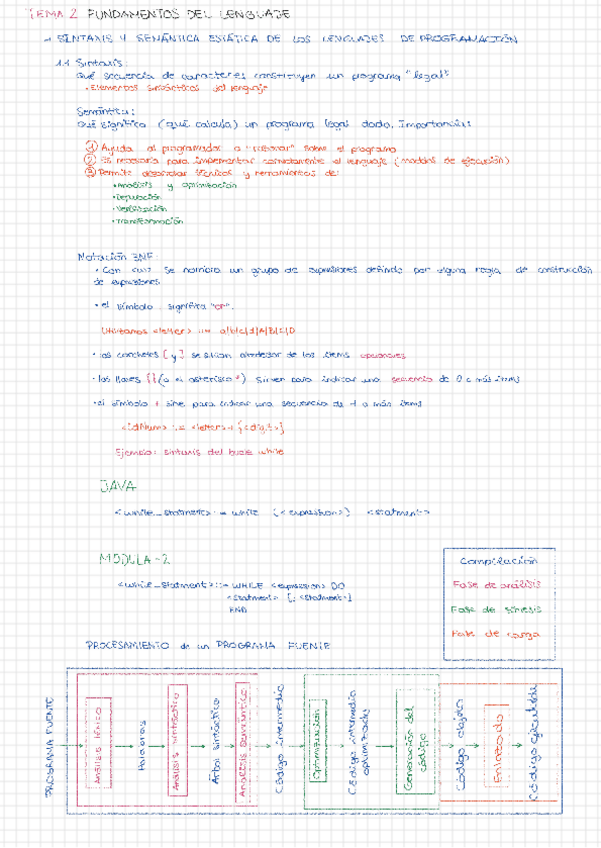 TEMA 2 FUNDAMENTOS DEL LENGUAJE
→ SINTAXIS Y SEMÁNTICA ESTÁTICA DE LOS LENGUAJES DE PROGRAMACIÓN
1.1 Sintaxis:
Qué secuencia de caracteres constituyen un programa "legal"
• Elementos sintácticos del lenguaje
Semántica:
Qué significa (qué calcula) un programa legal dado. Importancia:
① Ayuda al programador a "razonar" sobre el programa
② Es necesaria para implementar correctamente el lenguaje (modelos de ejecución)
③ Permite desarrollar técnicas y herramientas de:
• Análisis y optimización
• Depuración
• Verificación
• Transformación
Notación BNF:
• Con <id> se nombra un grupo de expresiones definido por alguna regla de construcción
de expresiones
• el símbolo | significa "or".
Utilizamos <letter> ::= a|b|c|d|A|B|C|D
• los corchetes [ y ] se sitúan alrededor de los ítems opcionales
• las llaves {} (o el asterisco *) sirven para indicar una secuencia de 0 o más ítems
• el símbolo + sirve para indicar una secuencia de 1 o más ítems
<idNum> ::= <letter>+ {<digit>}
Ejemplo: sintaxis del bucle while
JAVA
<while_statment> ::= while (<expression>) <statment>
MODULA-2
<while_statment> ::= WHILE <expression> DO
<statment> {; <statment>}
END
Compilación
Fase de análisis
Fase de síntesis
Fase de carga
PROCESAMIENTO de un PROGRAMA FUENTE
PROGRAMA FUENTE
Análisis léxico
Palabras
Análisis sintáctico
Árbol sintáctico
Análisis semántico
Código intermedio
Optimización
Código intermedio
optimizado
Generación del
código
Código objeto
Enlazado
Código ejecutable